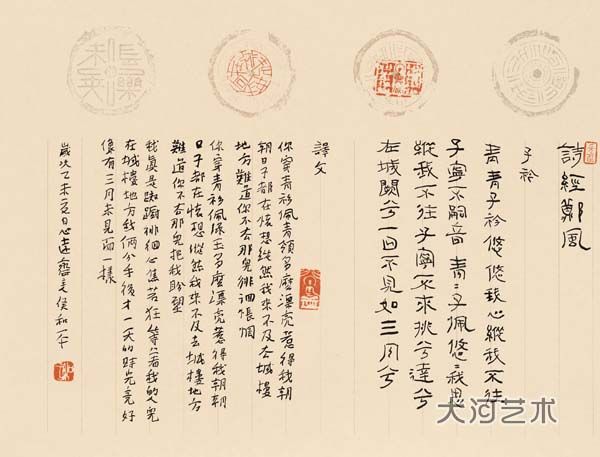 詩經鄭風
子衿
青青子衿悠悠我心縱我不往
子寧不嗣音青〻子佩悠〻我思
縱我不往子寧不來挑兮達兮
在城闕兮一日不見如三月兮
譯文
你穿青衫佩青領多麼漂亮惹得我朝
朝日子都在懷想縱然我來不及去城樓
地方難道你不去那兒徘徊悵惘
你穿青衫佩玉多麼漂亮惹得我朝朝
日子都在懷想縱然我來不及去城樓地方
難道你不去那兒把我盼望
我真是踟躕徘徊心焦若狂等着我的人兒
在城樓地方我倆分手後才一天的時光竟好
像有三月未見面一樣
歲次乙未夏日心遠齋主侯和平
大河艺术